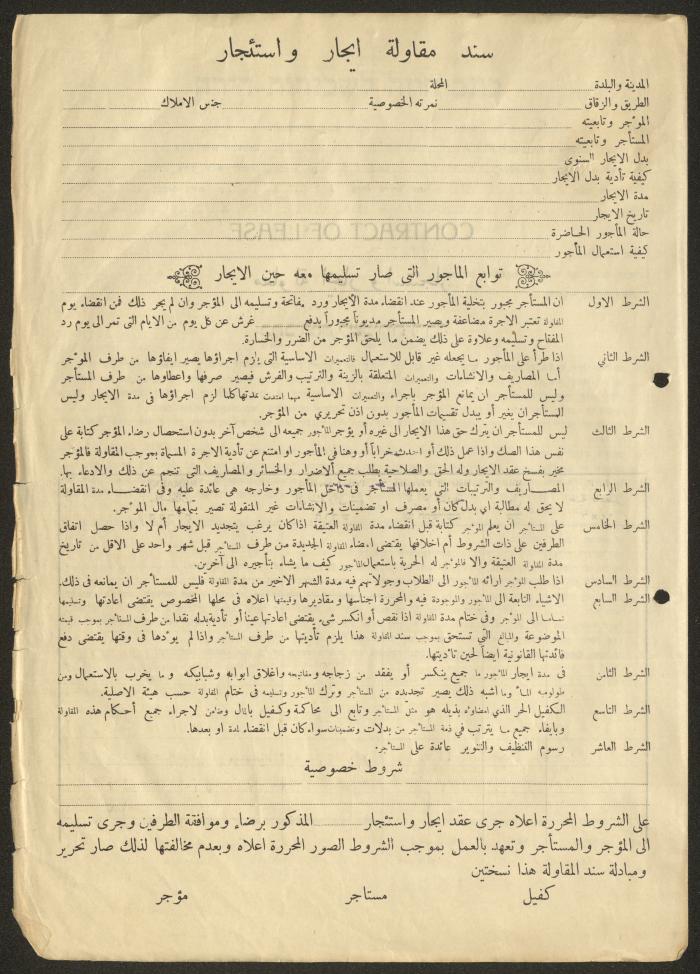 سند مقاولة ايجار واستئجار
المدينة والبلدة المحلة
الطريق والزقاق نمرته الخصوصية جنس الاملاك
الموجر وتابعيته
المستأجر وتابعيته
بدل الايجار السنوى
كيفية تأدية بدل الايجار
مدة الايجار
تاريخ الايجار
حالة المأجور الحاضرة
كيفية استعمال المأجور
CONTRACT OF LEASE
توابع المأجور التى صار تسليمها معه حين الايجار
الشرط الاول ان المستأجر مجبور بتخلية المأجور عند انقضاء مدة الايجار ورد مفاتحة وتسليمه الى المؤجر وان لم يجر ذلك فمن انقضاء يوم
المقاولة تعتبر الاجرة مضاعفة ويصير المستأجر مديوناً مجبوراً بدفع غرش عن كل يوم من الايام التى تمر الى يوم رد
المفتاح وتسليمه وعلاوة على ذلك يضمن ما يلحق المؤجر من الضرر والخسارة.
الشرط الثاني اذا طرأ على المأجور ما يجعله غير قابل للاستعمال فالتعميرات الاساسية التى يلزم اجراؤها يصير ايفاؤها من طرف الموجر
أما المصاريف والانشاءات والتعميرات المتعلقة بالزينة والترتيب والفرش فيصير صرفها واعطاوها من طرف المستأجر
وليس للمستأجر ان يمانع المؤجر باجراء والتعميرات الاساسية مهما امتدت مدتها كلما لزم اجراؤها فى مدة الايجار وليس
المستأجر ان يغير أو يبدل تقسيمات المأجور بدون اذن تحريري من المؤجر.
الشرط الثالث ليس للمستأجر ان يترك حق هذا الايجار الى غيره أو يؤجر المأجور جميعه الى شخص آخر بدون استحصال رضاء المؤجر كتابة على
نفس هذا الصك واذا عمل ذلك أو احدث خراباً أو وهنا في المأجور او امتنع عن تأدية الاجرة المسماة بموجب المقاولة فالمؤجر
مخير بفسخ عقد الايجار وله الحق والصلاحية بطلب جميع الاضرار والخسائر والمصاريف التى تنجم عن ذلك والادعاء بها.
الشرط الرابع المصاريف والترتيبات التى يعملها المستأجر فى داخل المأجور وخارجه هى عائدة عليه وفى انقضاء مدة المقاولة
لا يحق له مطالبة اي بدل كان أو مصرف او تضمينات والانشاءات غير المنقولة تصير بتمامها مال الموجر.
الشرط الخامس على المستأجر ان يعلم الموجر كتابة قبل انقضاء مدة المقاولة العتيقة اذا كان يرغب بتجديد الايجار أم لا واذا حصل اتفاق
الطرفين على ذات الشروط أم اخلافها يقتضى امضاء المقاولة الجديدة من طرف المستأجر قبل شهر واحد على الاقل من تاريخ
مدة المقاولة العتيقة والا فالموجر له الحرية باستعمال المأجور كيف ما يشاء بتأجيره الى آخرين.
الشرط السادس اذا طلب الموجر ارائه المأجور الى الطلاب وجولانهم فيه مدة الشهر الاخير من مدة المقاولة فليس للمستأجر ان يمانعه فى ذلك.
الشرط السابع الاشياء التابعة الى المأجور والموجودة فيه والمحررة اجناسها ومقاديرها وقيمتها اعلاه فى محلها المخصوص يقتضى اعادتها وتسليمها
تماما الى الموجر وفى ختام مدة المقاولة اذا نقص أو انكسر شىء يقتضى اعادتها عيناً أو تأدية بدله نقدا من طرف المستأجر بموجب قيمته
الموضوعة والمبالغ التي تستحق بموجب سند المقاولة هذا يلزم تأديتها من طرف المستأجر واذا لم يودها فى وقتها يقتضى دفع
فائدتها القانونية ايضا لحين تأديتها.
الشرط الثامن فى مدة ايجار المأجور ما جميع ينكسر أو يفقد من زجاجه ومفاتيحه واغلاق ابوابه وشبابيكه وما يخرب بالاستعمال ومن
الماء وما اشبه ذلك يصير تجديده من المستأجر وترك المأجور وتسليمه فى ختام المقاولة حسب هيئة الاصلية.
الشرط التاسع الكفيل الحر الذي امضاؤه بذيله هو مثل المستأجر وتابع الى محاكمة وكفيل بالمال وضامن لاجراء جميع أحكام هذه المقاولة
وبايفاء جميع ما يترتب فى ذمة المستأجر من بدلات وتضمينات سواء كان قبل انقضاء المدة او بعدها.
الشرط العاشر رسوم التنظيف والتنوير عائدة على المستأجر.
شروط خصوصية
على الشروط المحررة اعلاه جرى عقد ايجار واستئجار المذكور برضاء وموافقة الطرفين وجرى تسليمه
الى المؤجر والمستأجر وتعهد بالعمل بموجب الشروط الصور المحررة اعلاه وبعدم مخالفتها لذلك صار تحرير
ومبادلة سند المقاولة هذا نسختين
كفيل مستاجر مؤجر